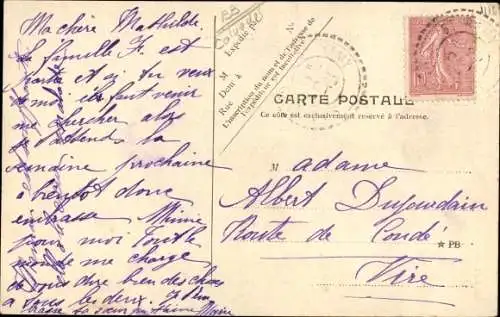 Ma chère Mathilde
La famille F. est
partie et si tu veux
de moi ils faut venir
me chercher alors
je t'attends la
semaine prochaine
à bientôt donc
embrasse Mimie
pour moi Tout le
monde me charge
de vous dire bien des choses
à vous les deux.
ta sœur qui t'aime
N°
Expédié par
M
Dom à
Rue
L'inscription du nom et de l'adresse de
l'Expédit. est facultative
CARTE POSTALE
Ce côté est exclusivement réservé à l'adresse.
Madame
Albert Dujourdain
Route de Condé
★ PB
Vire